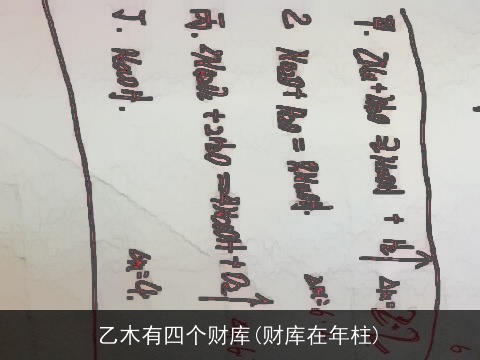 甲. 2Na+2H₂O =2NaOH + H₂↑
Na₂O+H₂O = 2NaOH.
丙. 2Na₂O₂+2H₂O =4NaOH+O₂↑
丁. NaOH. Δm=4.
乙木有四个财库(财库在年柱)